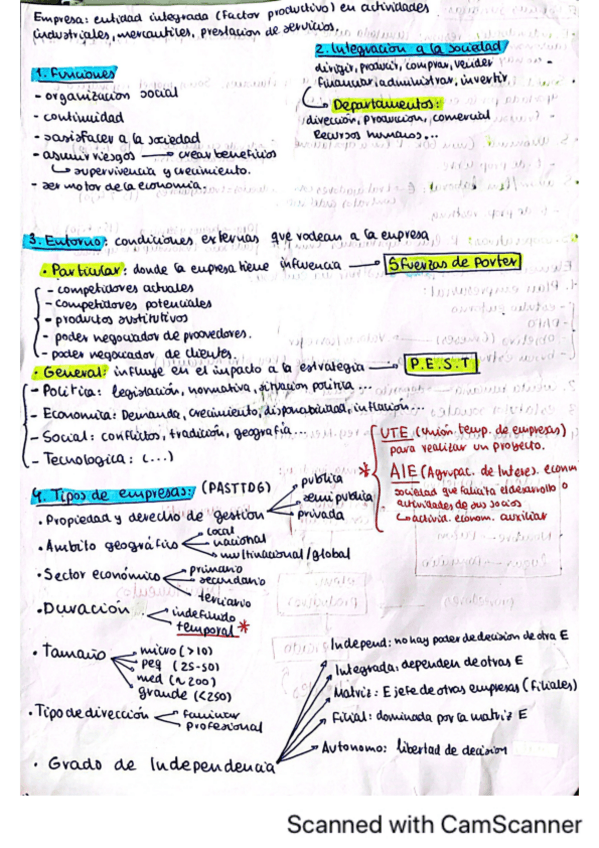 Empresa: entidad integrada (factor productivo) en actividades
industriales, mercantiles, prestación de servicios.
1. Funciones
- organización social
- continuidad
- satisfacer a la sociedad
- asumir riesgos → crear beneficios
↳ supervivencia y crecimiento.
- ser motor de la economía.
2. Integración a la sociedad
dirigir, producir, comprar, vender
financiar, administrar, invertir
↳ Departamentos:
dirección, producción, comercial
Recursos humanos...
3. Entorno: condiciones externas que rodean a la empresa
• Particular: donde la empresa tiene influencia → 5 fuerzas de Porter
- competidores actuales
- competidores potenciales
- productos sustitutivos
- poder negociador de proovedores.
- poder negociador de clientes.
• General: influye en el impacto a la estrategia → P.E.S.T
- Política: legislación, normativa, situación política ...
- Economica: Demanda, crecimiento, disponibilidad, inflación...
- Social: conflictos, tradición, geografía...
- Tecnologica: (...)
* UTE (Unión temp. de empresas)
para realizar un proyecto.
AIE (Agrupac. de Interes. econm
sociedad que falicita el desarrollo o
actividades de sus socios
Con activid. econom. auxiliar
4. Tipos de empresas: (PASTTDG)
• Propiedad y derecho de gestión
publica
semipublica
privada
• Ambito geográfico
local
nacional
multinacional/global
• Sector económico
primario
secundario
terciario
• Duración
indefinido
temporal *
• Tamaño
micro (>10)
peq (25-50)
med (~200)
grande (<250)
• Tipo de dirección
familiar
profesional
• Grado de Independencia
Independ: no hay poder de decision de otra E
Integrada: dependen de otras E
Matriz: E jefe de otras empresas (filiales)
Filial: dominada por la matriz E
Autonomo: libertad de decision
Scanned with CamScanner